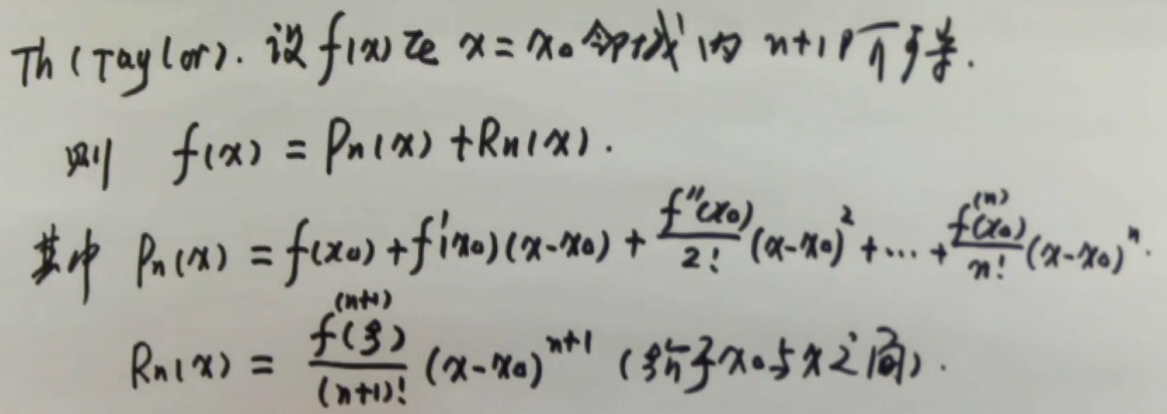 Th (Taylor). 设 f(x) 在 x = x₀ 邻域内 n+1阶可导.
则 f(x) = Pn(x) + Rn(x).
其中 Pn(x) = f(x₀) + f'(x₀)(x-x₀) + f''(x₀)/2! (x-x₀)² + ... + f⁽ⁿ⁾(x₀)/n! (x-x₀)ⁿ.
Rn(x) = f⁽ⁿ⁺¹⁾(ξ)/(n+1)! (x-x₀)ⁿ⁺¹ (ξ介于x₀与x之间).